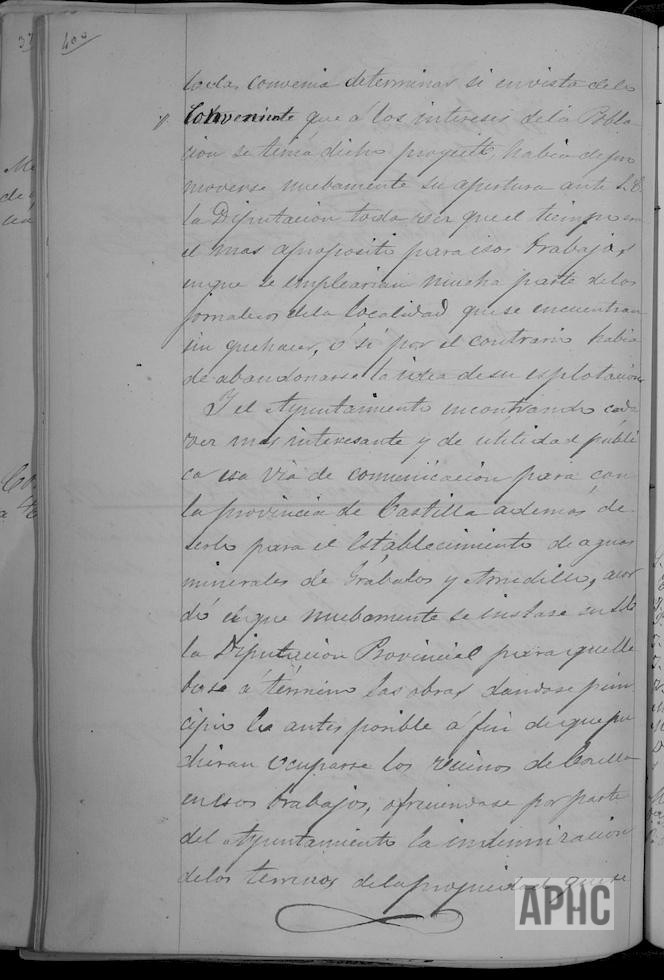 400
todas convenia determinar si en vista de lo
Conveniente que á los intereses dela Pobla
cion se tenia dicho proyecto, habia de pro
moverse nuebamente su apertura ante S.E.
la Diputacion toda vez que el tiempo era
el mas aproposito para esos trabajos
en que se emplearian mucha parte de los
jornaleros dela localidad que se encuentran
sin quehacer, ó si por el contrario habia
de abandonarse la idea de su esplotacion.
Y el Ayuntamiento encontrando cada
vez mas interesante y de utilidad públi
ca esa via de comunicacion para con
la provincia de Castilla ademas de
serlo para el Establecimiento de aguas
minerales de Grábalos y Arnedillo, acor
dó el que nuebamente se instase en
la Diputacion Provincial para que lle
base á término las obras dandose prin
cipio lo antes posible á fin de que pu
dieran ocuparse los vecinos de Corella
en esos trabajos, ofreciendose por parte
del Ayuntamiento la indemnizacion
delos terrenos dela propiedad que se
APHC